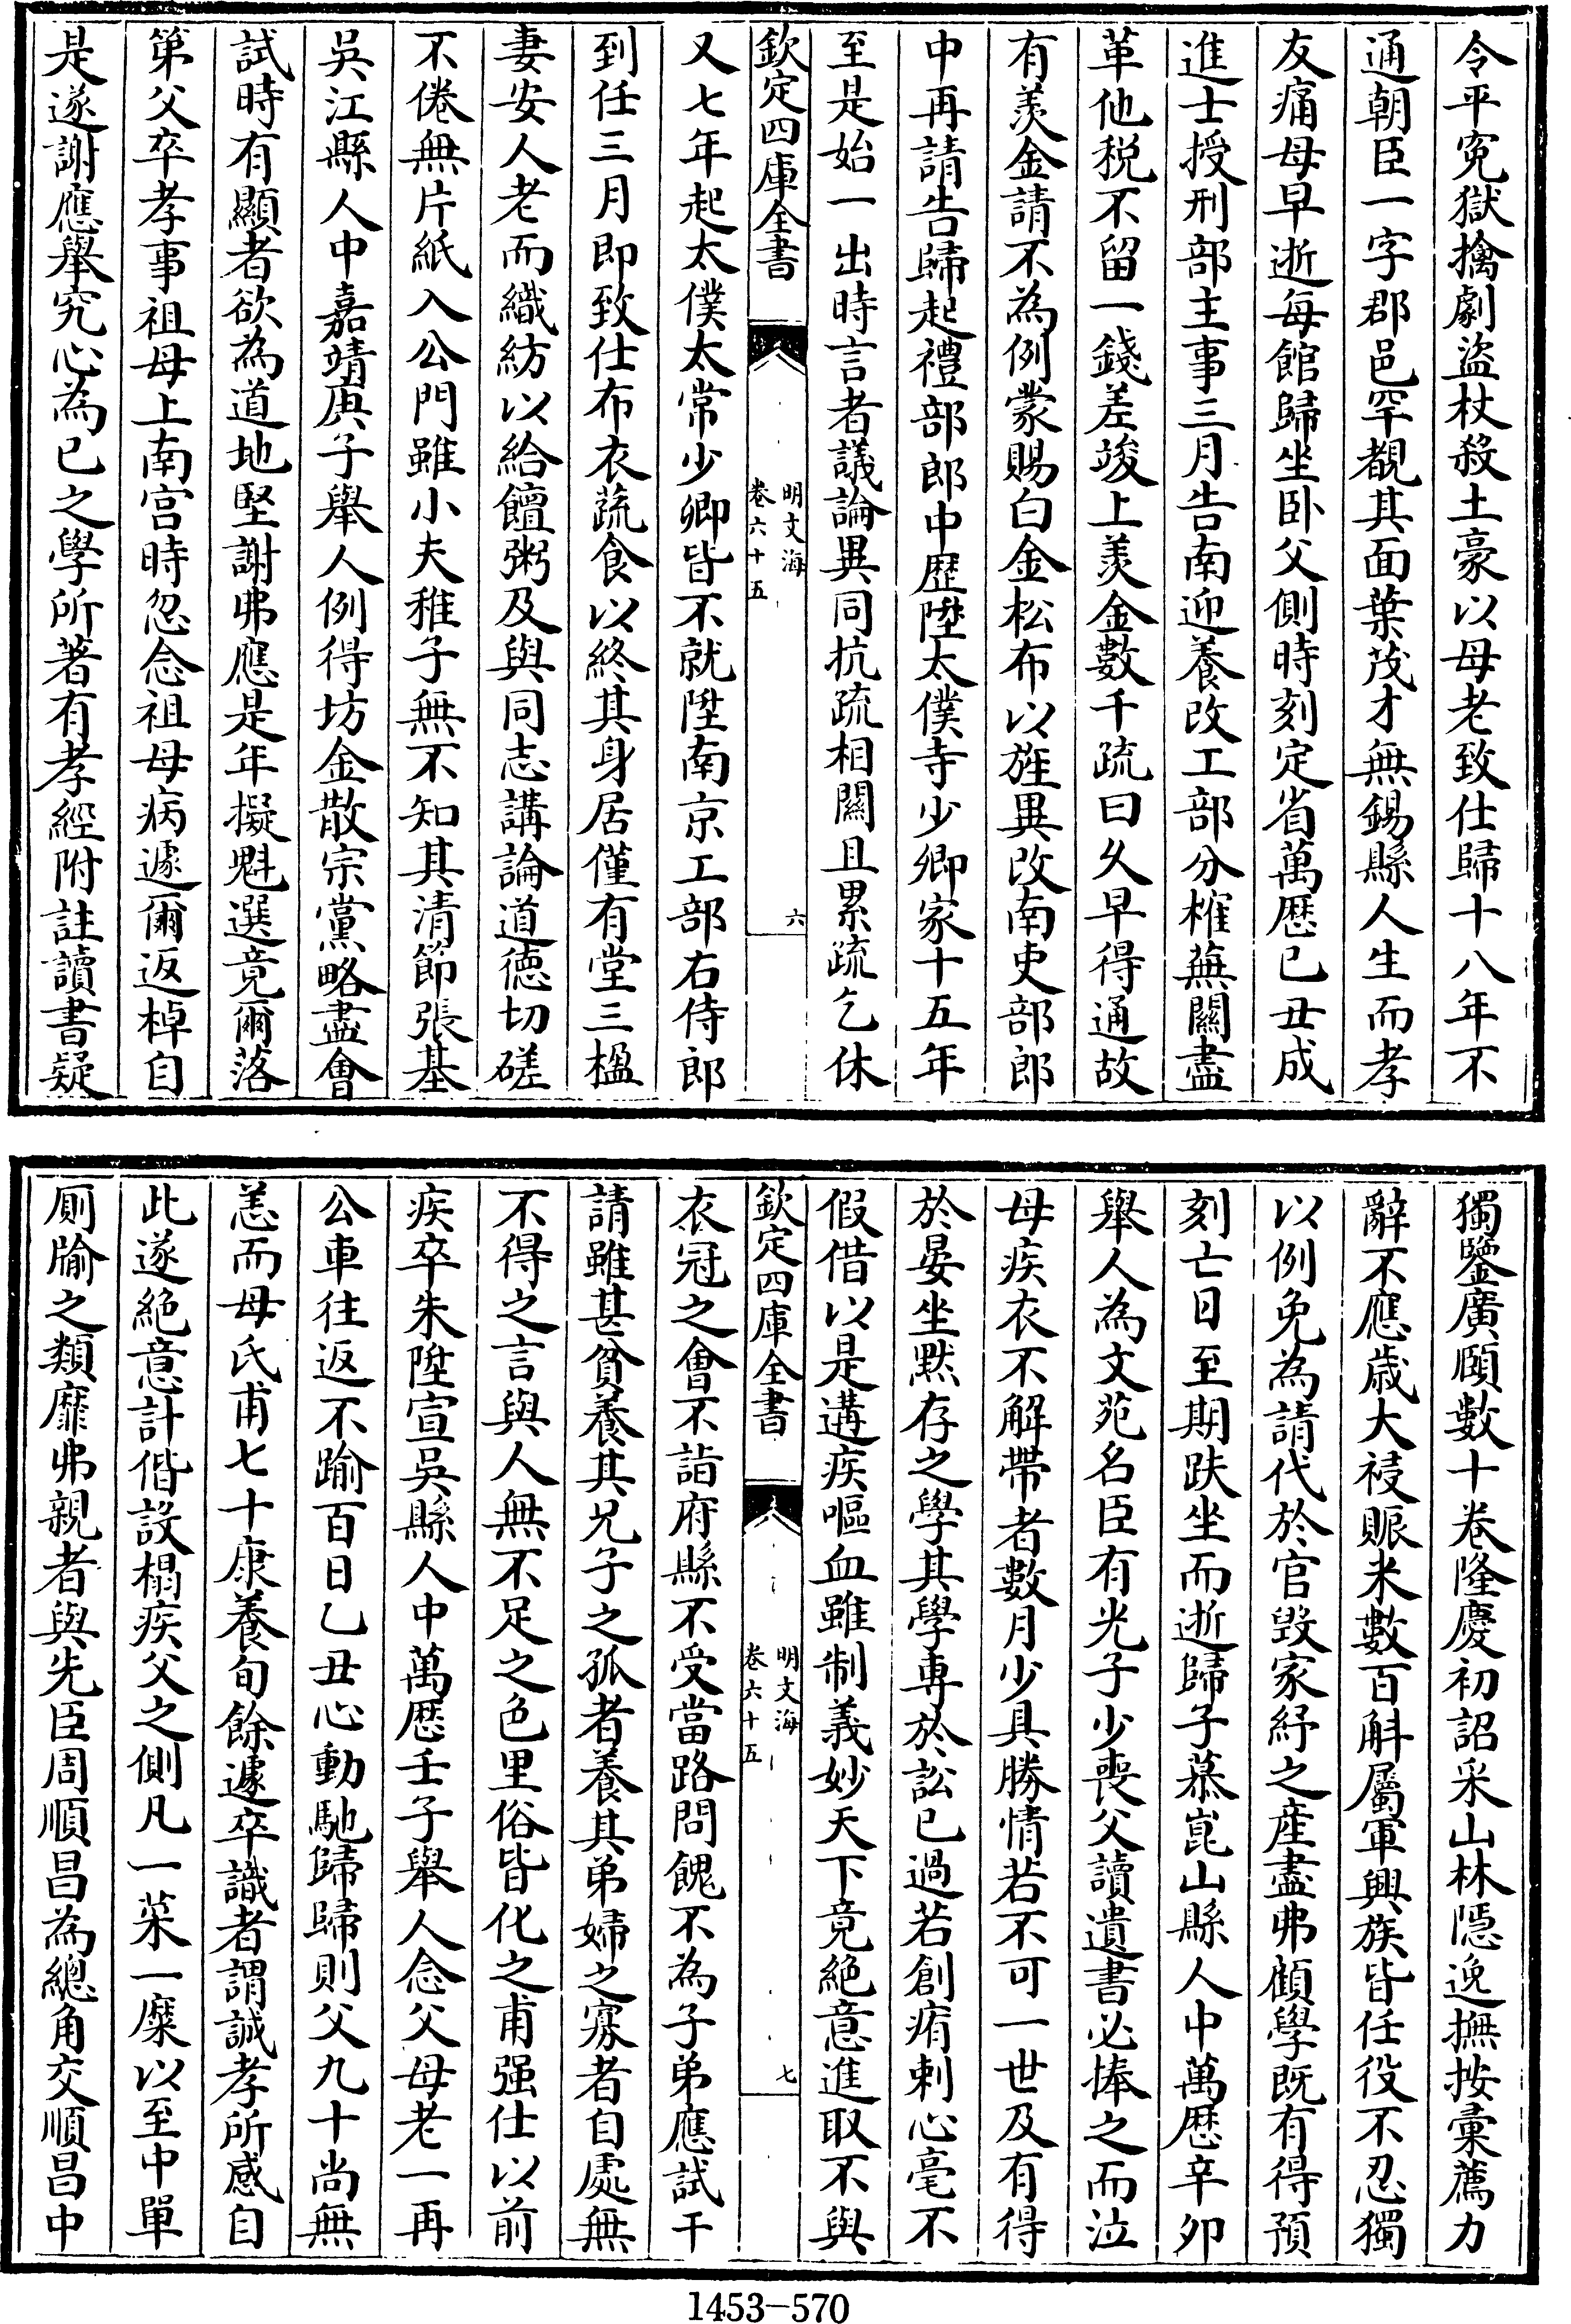 令平寃獄擒劇盜杖殺土豪以母老致仕歸十八年不
通朝臣一字郡邑罕覩其面葉茂才無錫縣人生而孝
友痛母早逝每館歸坐卧父側時刻定省萬厯已丑成
進士授刑部主事三月告南迎養改工部分榷蕪關盡
革他税不留一錢差竣上羡金數千疏曰久旱得通故
有羡金請不為例蒙賜白金松布以旌異改南吏部郎
中再請告歸起禮部郎中歴陞太僕寺少卿家十五年
至是始一出時言者議論異同抗疏相關且累疏乞休
欽定四庫全書
明文海
卷六十五
六
又七年起太僕太常少卿皆不就陞南京工部右侍郎
到任三月即致仕布衣蔬食以終其身居僅有堂三楹
妻安人老而織紡以給饘粥及與同志講論道徳切磋
不倦無片紙入公門雖小夫稚子無不知其清節張基
吳江縣人中嘉靖庚子舉人例得坊金散宗黨略盡會
試時有顯者欲為道地堅謝弗應是年擬魁選竟爾落
第父卒孝事祖母上南宫時忽念祖母病遽爾返棹自
是遂謝應舉究心為已之學所著有孝經附註讀書疑
獨鑒廣頤數十卷隆慶初詔采山林隠逸撫按彙薦力
辭不應歳大祲賑米數百斛屬軍興族皆任役不忍獨
以例免為請代於官毁家紓之産盡弗顧學既有得預
刻亡日至期趺坐而逝歸子慕崑山縣人中萬厯辛卯
舉人為文苑名臣有光子少喪父讀遺書必捧之而泣
母疾衣不解帶者數月少具勝情若不可一世及有得
於晏坐黙存之學其學專於訟已過若創痏刺心毫不
假借以是遘疾嘔血雖制義妙天下竟絶意進取不與
欽定四庫全書
明文海
卷六十五
七
衣冠之會不詣府縣不受當路問餽不為子弟應試干
請雖甚貧養其兄子之孤者養其弟婦之寡者自處無
不得之言與人無不足之色里俗皆化之甫强仕以前
疾卒朱陞宣吳縣人中萬厯壬子舉人念父母老一再
公車往返不踰百日乙丑心動馳歸歸則父九十尚無
恙而母氏甫七十康養旬餘遽卒識者謂誠孝所感自
此遂絶意計偕設榻疾父之側凡一菜一糜以至中單
厠牏之類靡弗親者與先臣周順昌為總角交順昌中
1453—570